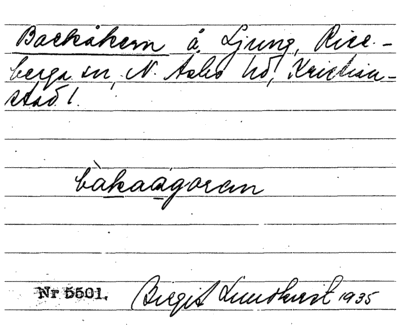 Backåkern å Ljung, Rise-
berga sn, N. Åsbo hd, Kristian-
stad l.
bàkaågoran
Nr 5501. Birgit Lundkvist 1935